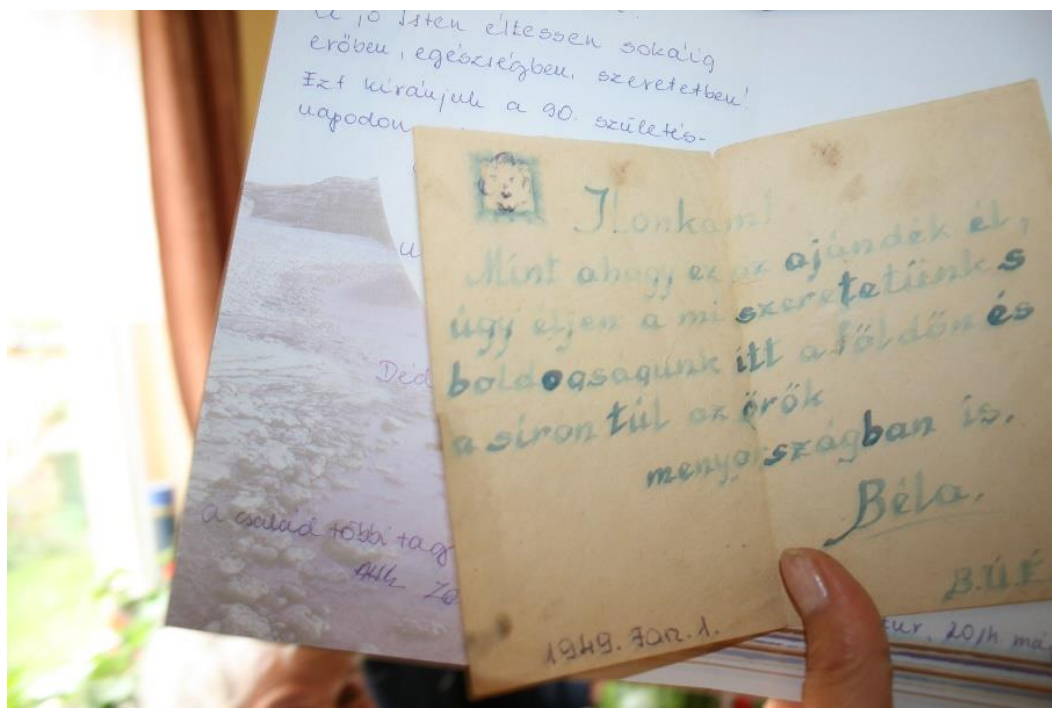 a jó Isten éltessen sokáig
erőben, egészségben, szeretetben!
Ezt kívánjuk a 90. születés-
napodon
Ded
a család többi tag
Ilonkám!
Mint ahogy ez az ajándék él,
úgy éljen a mi szeretetünk s
boldogságunk itt a földön és
a síron túl az örök
menyországban is.
Béla.
B.Ú.É
1949. Jan. 1.